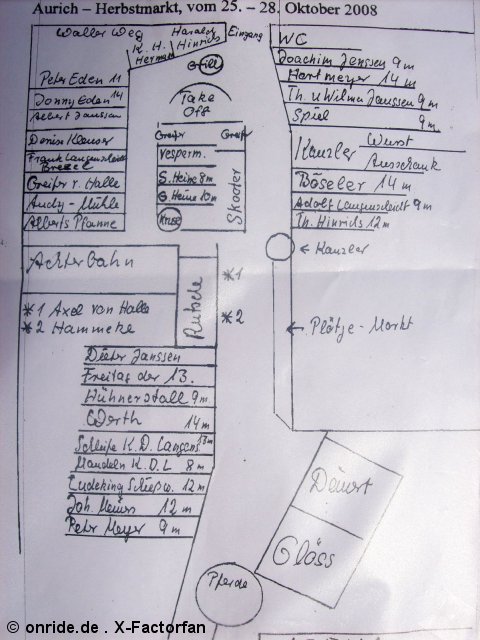 Aurich – Herbstmarkt, vom 25. – 28. Oktober 2008
Waller Weg
K. H.
Harald
Hinrichs
Eingang
Grill
Take
Off
Peter Eden 11
Donny Eden 14
Albert Janssen
Denise Klauser
Brezel
Greifer v. Halle
Audy-Mühle
Alberts Pfanne
Greifer
Greifer
Vesperm.
S. Heine 8m
G. Heine 10m
Kruse
Skooter
WC
Joachim Janssen 9m
Hartmeyer 14 m
Th. u Wilma Janssen 9m
Spiel 9m
Kanzler Wurst
Ausschank
Böseler 14 m
Adolf Langenscheidt 9m
Th. Hinrichs 12m
← Kanzler
← Plätje-Markt
Achterbahn
Rutsche
*1
*2
*1 Axel von Halle
*2 Hammeke
Dieter Janssen
Freitag der 13.
Hühnerstall 9m
Werth 14m
Schleife K.D. Langens 13m
Mandeln K.D.L 8m
Lüdeking Schießw. 12m
Joh. 12m
Peter Meyer 9m
Gläss
Pferde
© onride.de . X-Factorfan